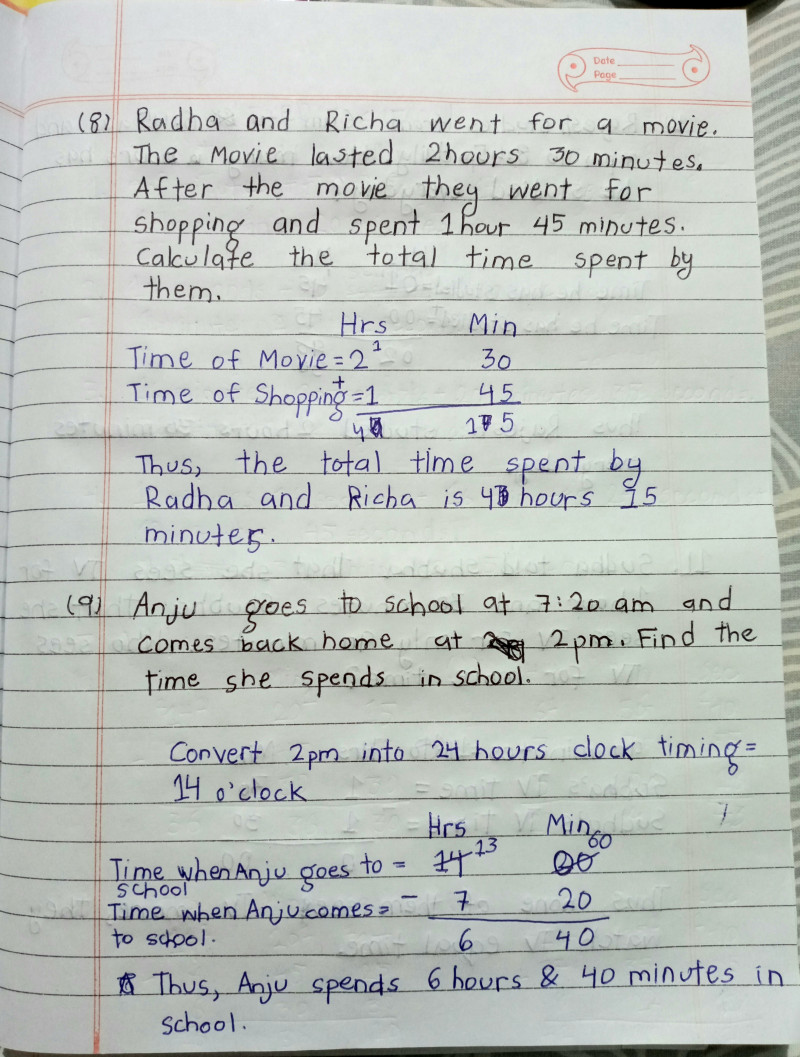 Date
Page
(8) Radha and Richa went for a movie.
The Movie lasted 2hours 30 minutes.
After the movie they went for
shopping and spent 1hour 45 minutes.
Calculate the total time spent by
them.
Hrs Min
Time of Movie=2 1 30
Time of Shopping=+1 45
4 15
Thus, the total time spent by
Radha and Richa is 4 hours 15
minutes.
(9) Anju goes to school at 7:20 am and
comes back home at 2pm. Find the
time she spends in school.
Convert 2pm into 24 hours clock timing=
14 o'clock
Hrs Min
Time when Anju goes to = 14 13 00 60
school
Time when Anju comes= - 7 20
to school.
6 40
Thus, Anju spends 6 hours & 40 minutes in
school.